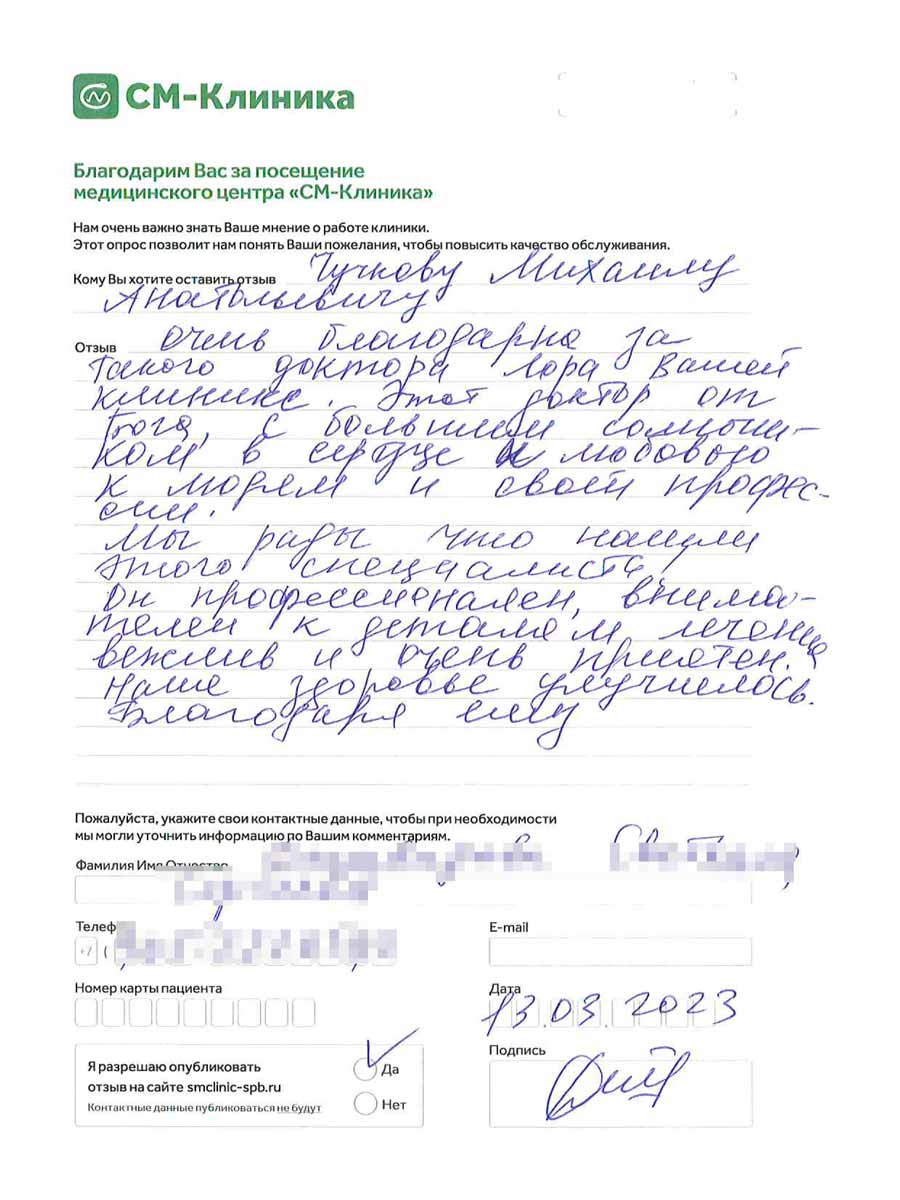 СМ-Клиника
Благодарим Вас за посещение
медицинского центра «СМ-Клиника»
Нам очень важно знать Ваше мнение о работе клиники.
Этот опрос позволит нам понять Ваши пожелания, чтобы повысить качество обслуживания.
Кому Вы хотите оставить отзыв Чучкову Михаилу
Анатольевичу
Отзыв очень благодарна за
такого доктора Лора вашей
клиники. Этот доктор от
Бога, с большим солныш-
ком в сердце и любовью
к людям и своей профес-
сии.
Мы рады что нашли
этого специалиста!
Он профессионален, внима-
телен к деталям лечения
вежлив и очень приятен.
Наше здоровье улучшилось.
Благодаря ему
Пожалуйста, укажите свои контактные данные, чтобы при необходимости
мы могли уточнить информацию по Вашим комментариям.
Фамилия Имя Отчество
Телеф
+7 (
E-mail
Номер карты пациента
Дата
13.03.2023
Подпись
Я разрешаю опубликовать
отзыв на сайте smclinic-spb.ru
Контактные данные публиковаться не будут
Да
Нет